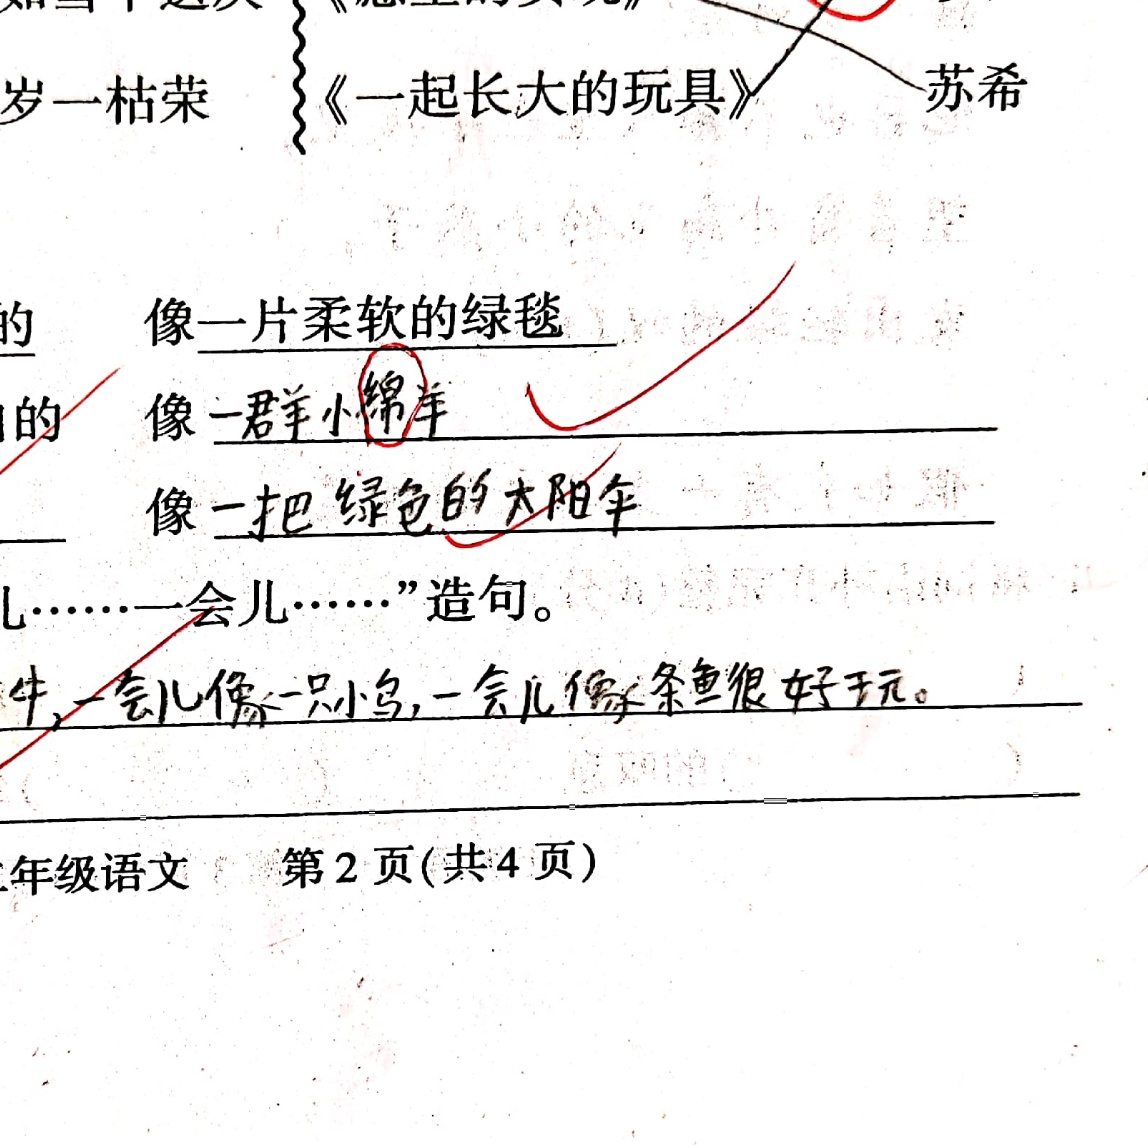 岁一枯荣 《一起长大的玩具》 苏希
的 像一片柔软的绿毯
的 像一群小绵羊
像一把绿色的太阳伞
儿……一会儿……”造句。
牛,一会儿像一只小鸟,一会儿像条鱼很好玩。
年级语文 第2页(共4页)